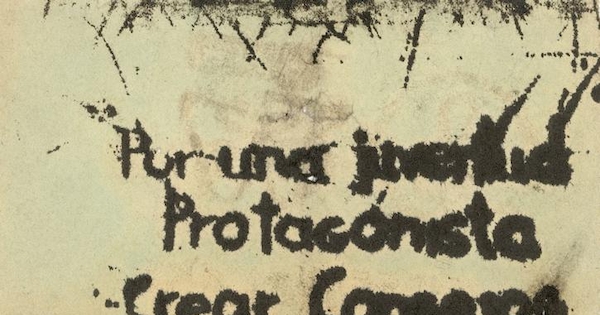 Por una juventud
Protagónista
Crear